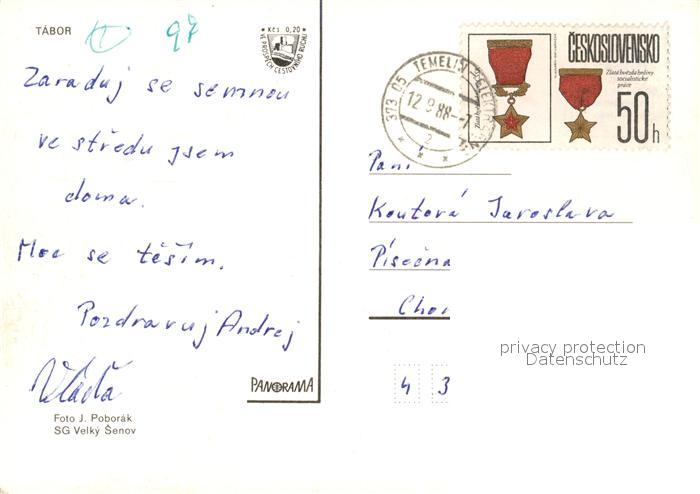 TÁBOR
97
Kčs 0,20
VE PROSPĚCH CESTOVNÍHO RUCHU
Zaraduj se semnou
ve středu jsem
doma.
Moc se těším.
Pozdravuj Andrej
Vláďa
PANORAMA
Foto J. Poborák
SG Velký Šenov
373 05 TEMELÍN
12.9.88-7
2
ČESKOSLOVENSKO
Zlatá hvězda hrdiny
socialistické
práce
50h
Paní
Koutová Jaroslava
Písečna
Cho
4 3
privacy protection
Datenschutz